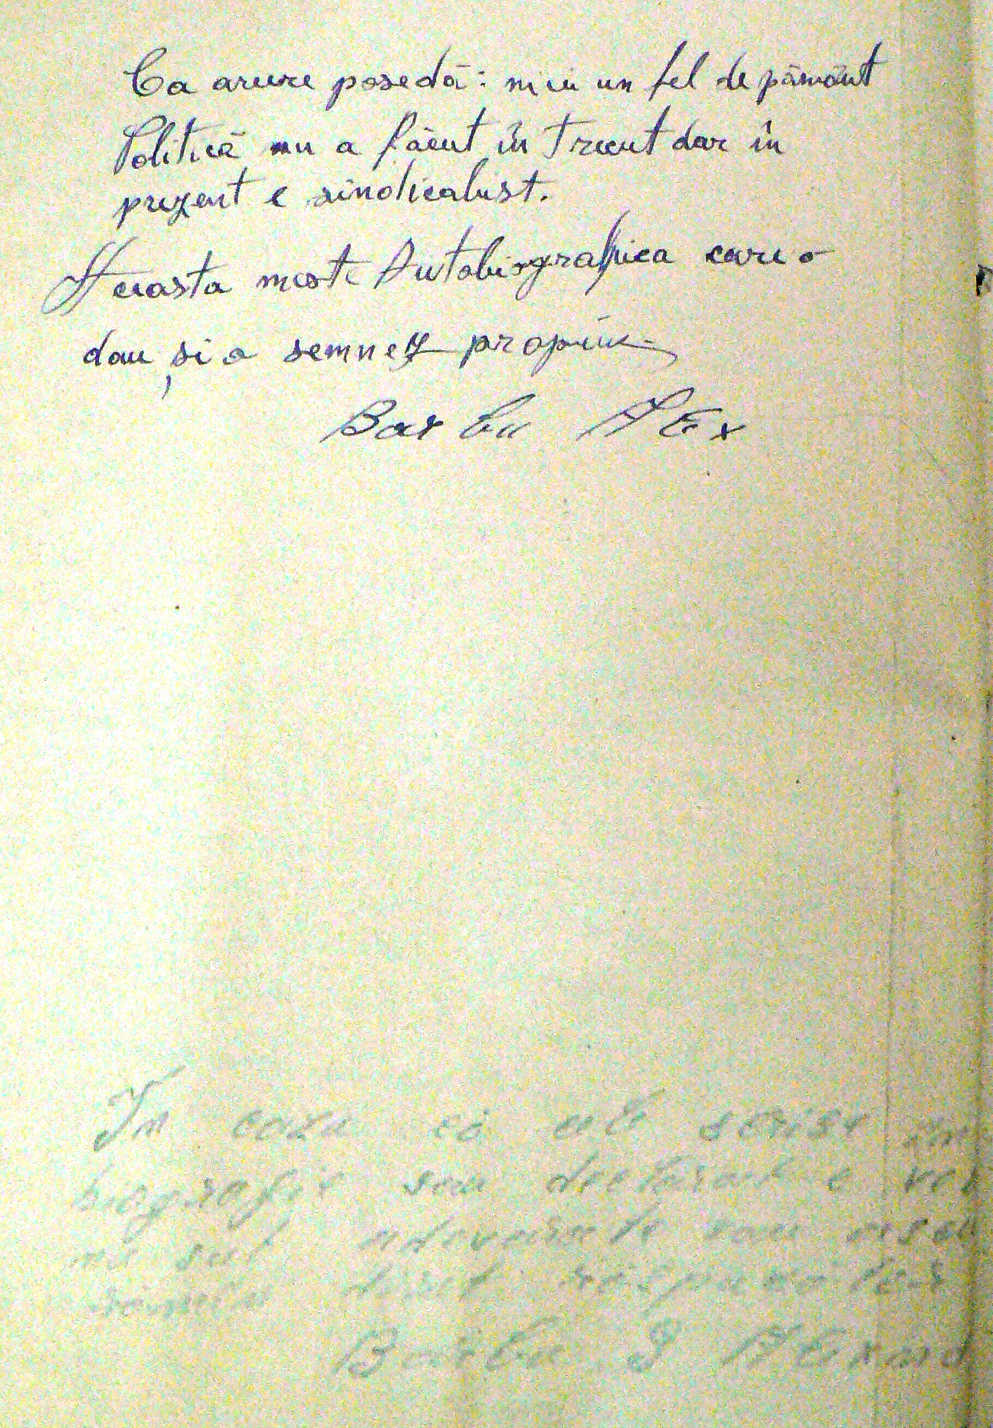 Ca avere posedă: nici un fel de pământ
Politică nu a făcut în trecut dar în
prezent e sindicalist.
Aceasta mește Autobiografica care o
dau și o semnez propriu
Barbu Alex
In cazu că cele scrise în
biografie sau declarate e
nu sut adevarate sau
direct
Barbu I Alexand